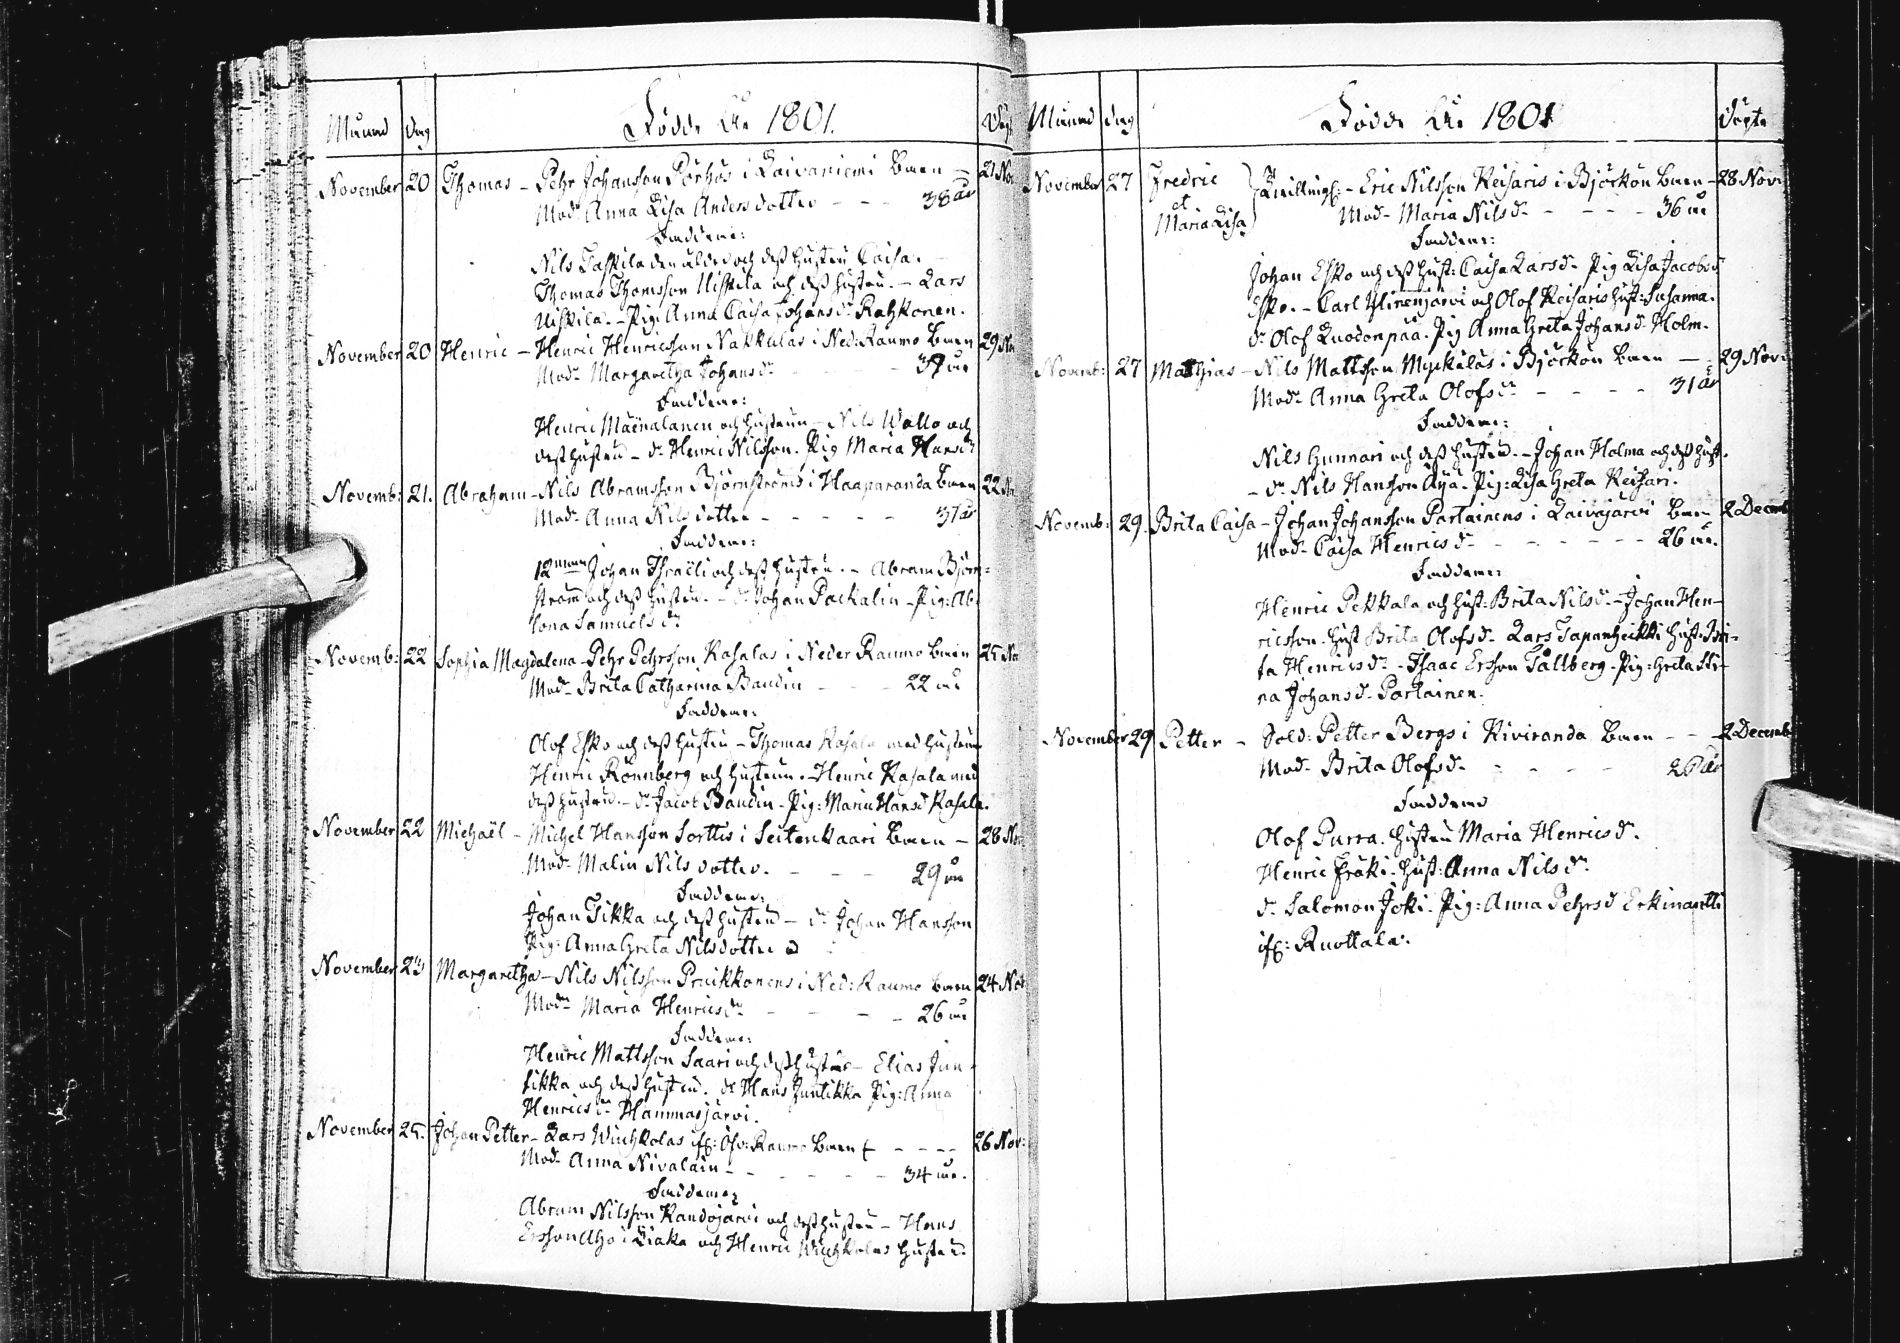 Månad dag Födde År 1801. Döpt
November 20 Thomas - Pehr Johansson Pörhös i Laivaniemi Barn - 21 Nov
Modr Anna Lisa Andersdotter - - - 38 år
Faddrar:
Nils Taskila den äldre och dess hustru Caisa. -
Thomas Thomsson Uiskila och dess hustru. - Lars
Uiskila. - Pig: Anna Caisa Johansdr Rahkonen.
November 20 Henric - Henric Henricsson Nakkulas i Ned: Raumo Barn 29 No
Modr Margaretha Johansdr - - - år
Faddrar:
Henric Mäenalanen och hustrun - Nils Wallo och
dess hustru - dr Henric Nilsson. Pig Maria Hansdr
Novemb: 21. Abraham - Nils Abramsson Björnströms i Haaparanda Barn 22 No
Modr Anna Nilsdotter - - - - - 37 år
Faddrar:
12man Johan Israëli och dess hustru. - Abram Björn=
ström och dess hustru. - dr Johan Packalin - Pig: Ab-
lona Samuelsdr
Novemb: 22 Sophia Magdalena - Pehr Pehrsson Kasalas i Neder Raumo Barn 25 No
Modr Brita Catharina Baudin - - - 22 år
Faddrar:
Olof Esko och dess hustru - Thomas Kasala med hustrun
Henric Rönnberg och hustrun. - Henric Kasala med
dess hustru. - dr Jacob Baudin - Pig: Maria Hansd Kasala.
November 22 Michaël - Michel Hansson Sorttis i Seitenkaari Barn - 28 Nov
Modr Malin Nilsdotter. - - - 29 år
Faddrar:
Johan Isikka och dess hustru - dr Johan Hansson
Pig: Anna Greta Nilsdotter
November 23 Margaretha - Nils Nilsson Pruikkonens i Ned: Raumo Barn 24 Nov
Modr Maria Henricsdr - - - - 26 år
Faddrar:
Henric Mattsson Saari och dess hustru - Elias Jun-
tikka och dess hustru. dr Hans Juntikka Pig: Anna
Henricsdr Hammasjärvi.
November 25. Johan Petter - Lars Wuihkolas if: Öfv: Raumo Barn - - - - 26 Nov:
Modr Anna Nivalain - - - - - 34 år.
Faddrar:
Abram Nilsson Kandojärvi och dess hustru - Hans
Ersson Aho i Liaka och Henric Wuihkolas hustru.
Månad dag Födde År 1801 Döpte
November 27 Fredric et Maria Lisa Tvillingf: - Eric Nilsson Keisaris i Björkön Barn - 28 Nov:
Modr Maria Nilsdr - - - - 36 år
Faddrar:
Johan Esko och dess hust: Caisa Larsdr Pig Lisa Jacobsd
Esko. - Carl Ylinenjärvi och Olof Keisaris hust: Susanna.
dr Olof Luodonpää. Pig Anna Greta Johansd. Holm.
Novemb: 27 Mathias - Nils Mattsson Myckiläs i Björkön Barn - - 29 Nov:
Modr Anna Greta Olofsdr - - - - 31 år
Faddrar:
Nils Gunnari och dess hustru. - Johan Holma och dess hust.
- dr Nils Hansson Äijä. Pig: Lisa Greta Keisari.
Novemb: 29. Brita Caisa - Johan Johansson Partainens i Laivajärvi Barn 2 Decemb
Modr Caisa Henricsdr - - - - - - 26 år.
Faddrar:
Henric Pekkala och hust: Brita Nilsdr - Johan Hen-
ricsson. hust Brita Olofsdr Lars Tapanheikki hust: Bri-
ta Henricsdr - Isaac Ersson Tållberg - Pig: Greta Sti-
na Johansd. Partainen.
November 29 Petter - Sold: Petter Bergs i Kiviranda Barn - - 2 Decemb
Modr Brita Olofsdr - - - - år
Faddrar
Olof Purra. hustru Maria Henricsdr.
Henric Fräki. hust: Anna Nilsdr
dr Salomon Joki. Pig: Anna Pehrsd Erkinantti
if: Ruottala.